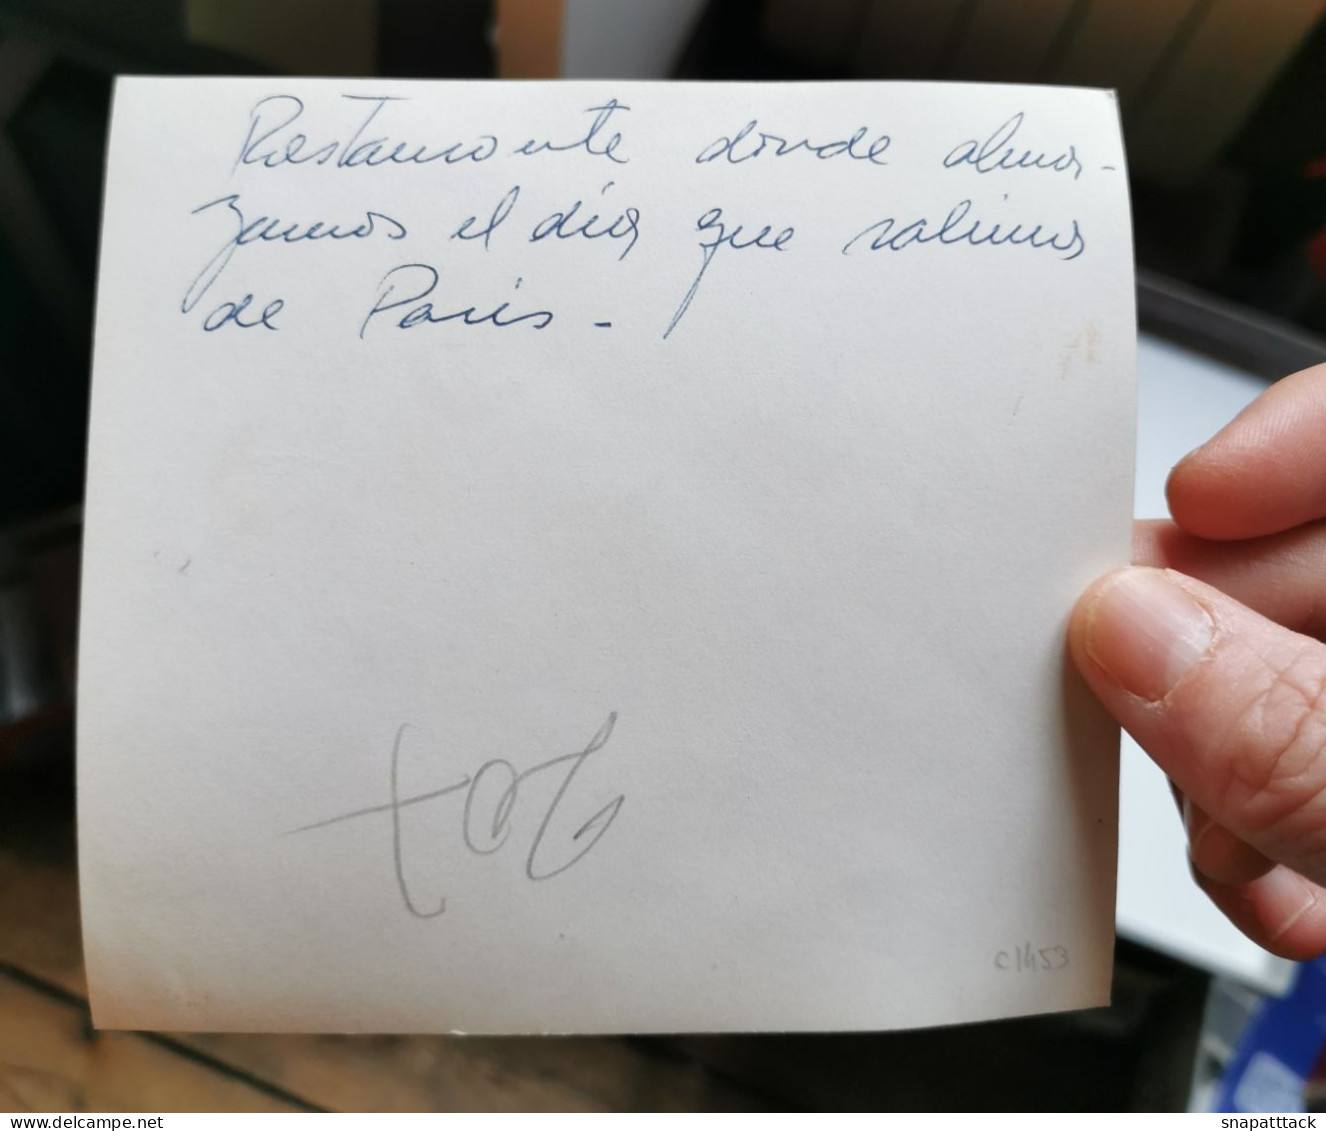 Restaurante donde almor-
zamos el día que salimos
de París -
c1453
delcampe.net
snapatttack